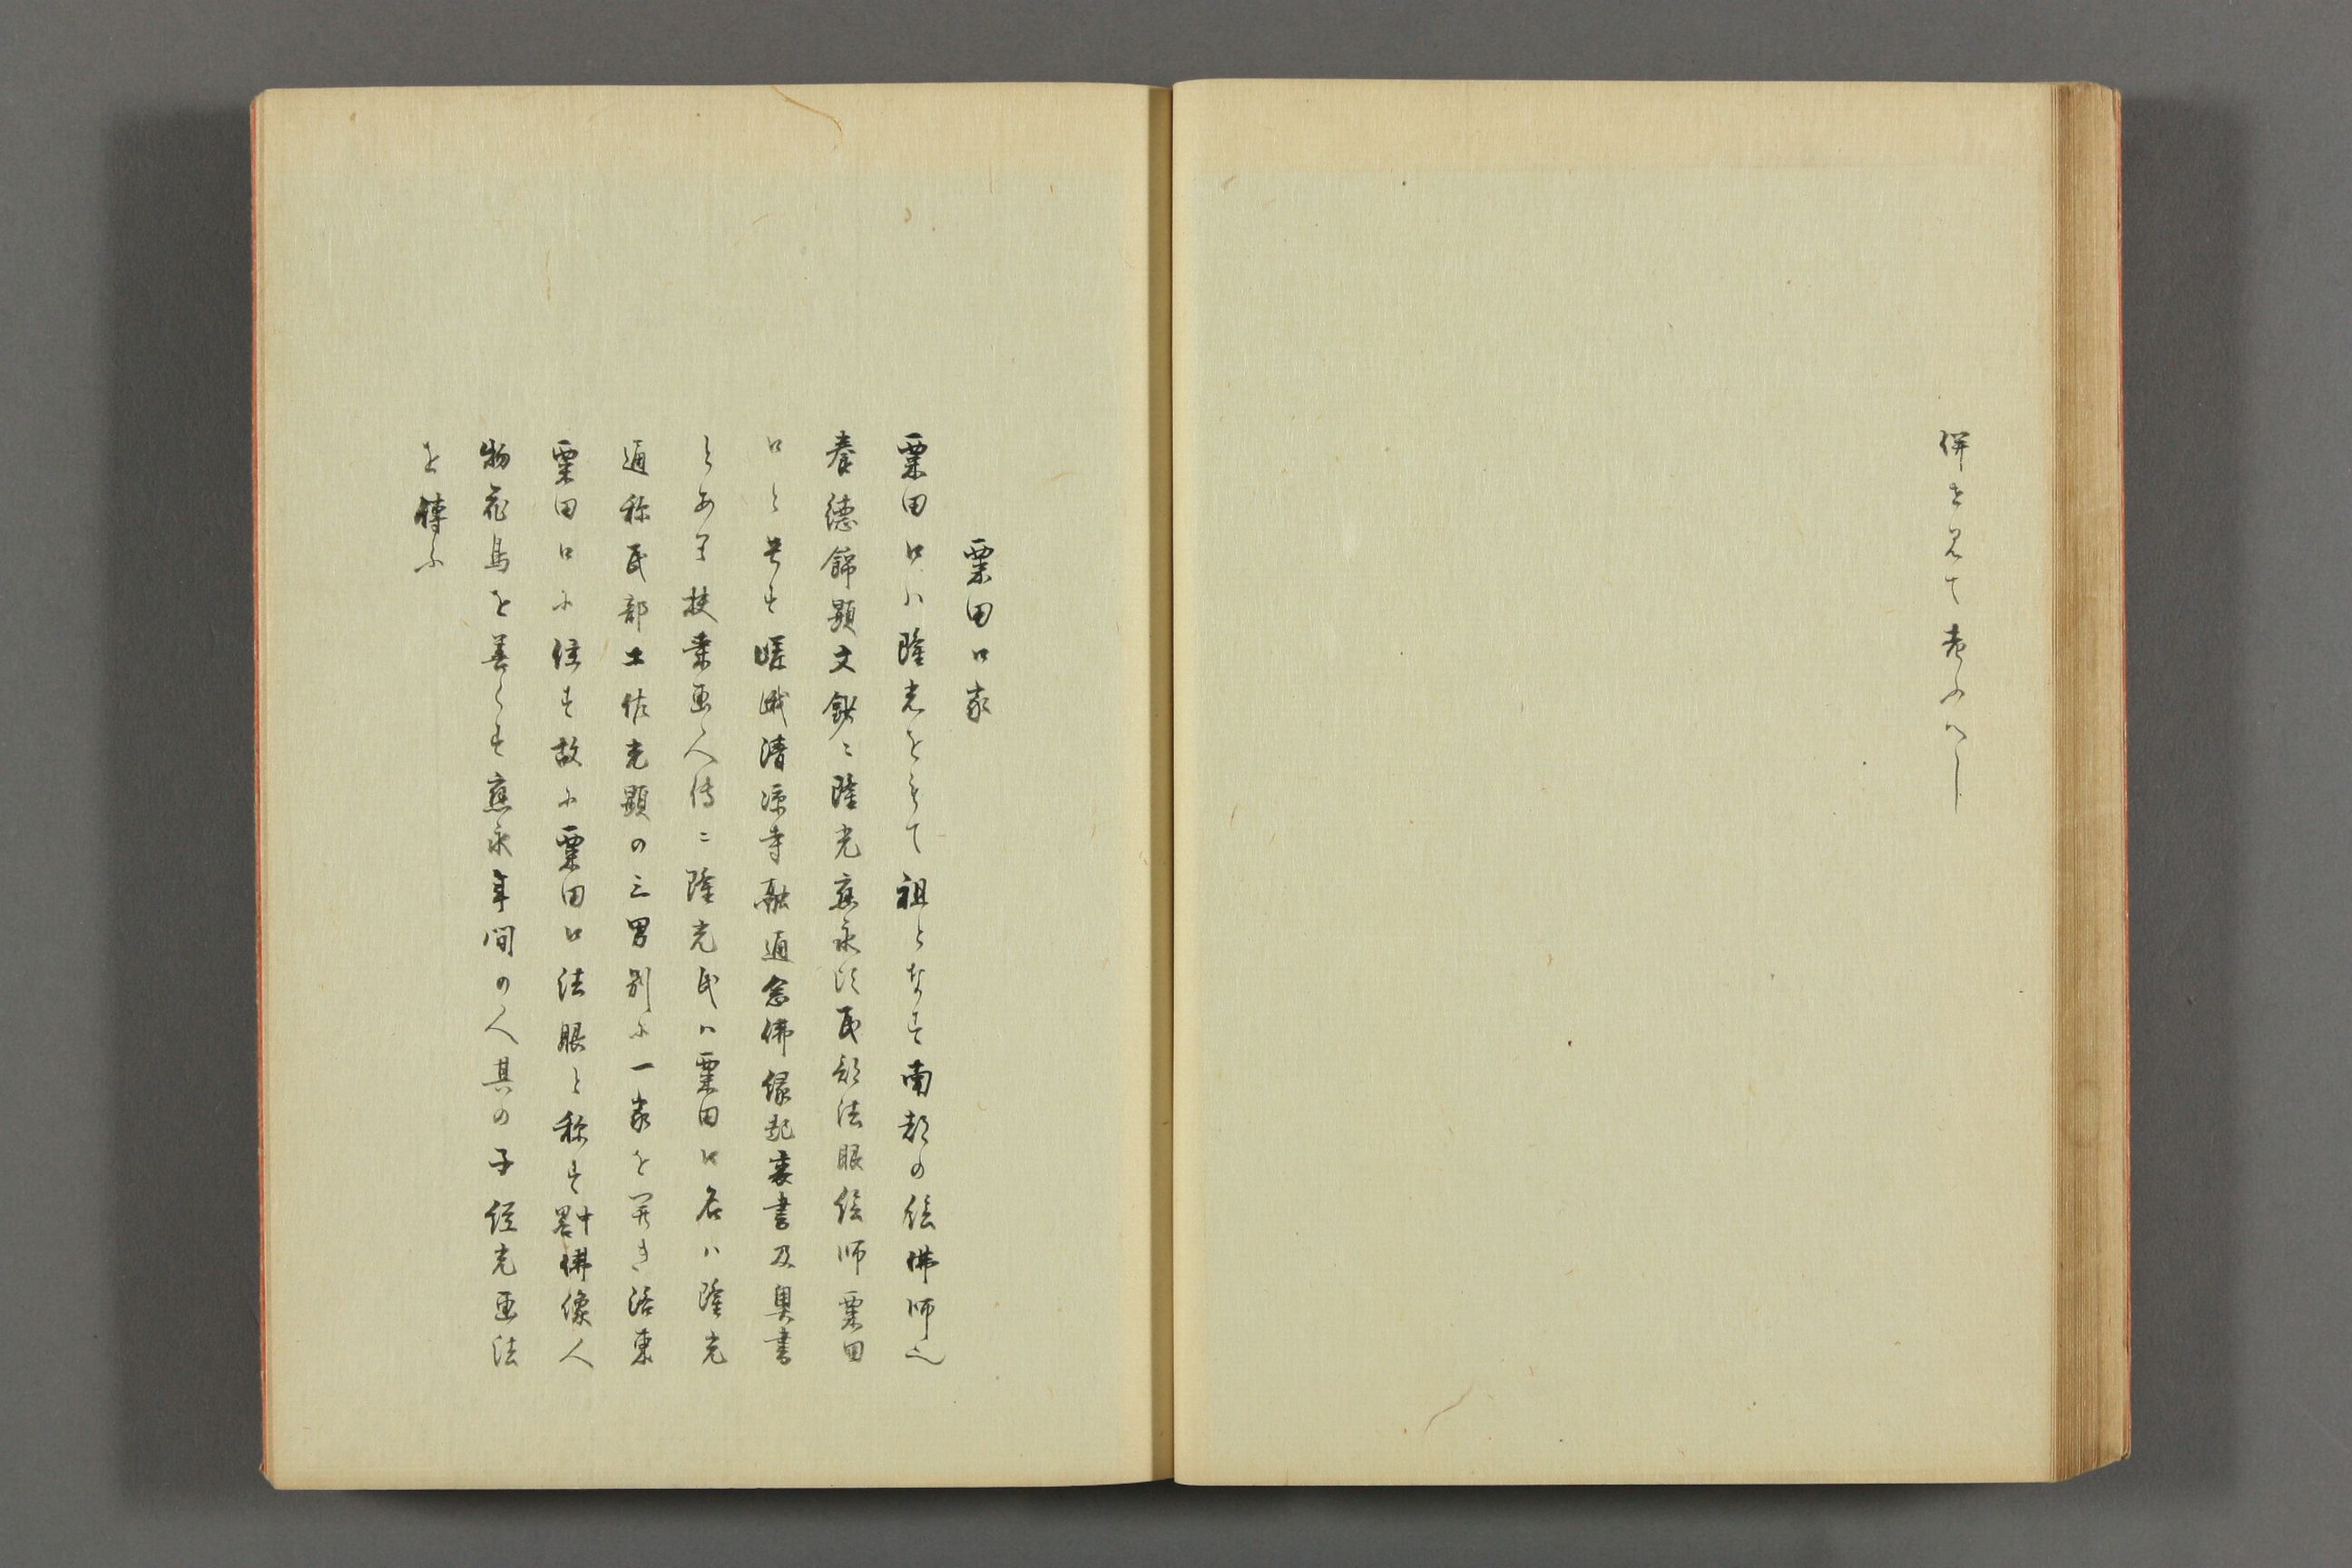 併せ見て考ふへし
粟田口家
粟田口ハ隆光をもて祖となす南都の絵佛師也
養德錦顕文鈔ニ隆光應永頃民部法眼絵師粟田
口と号す嵯峨清凉寺融通念佛縁起裏書及奥書
とあり扶桑画人伝ニ隆光氏ハ粟田口名ハ隆光
通称民部土佐光顕の三男別ニ一家を開き洛東
粟田口ニ住す故ニ粟田口法眼と称す畧中佛像人
物花鳥を善くす應永年間の人其の子経光画法
を傳ふ